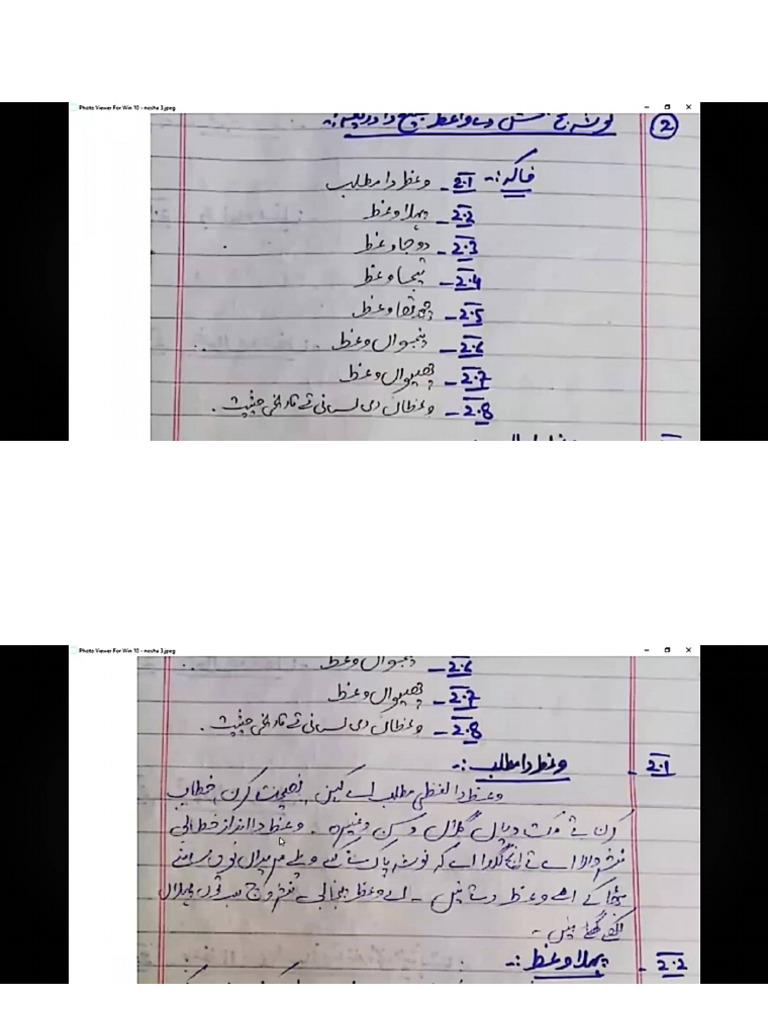 Photo Viewer For Win 10 - nosha 3.jpeg
2
خاکہ:- 2.1 - وعظ دا مطلب
2.2 - پہلا وعظ
2.3 - دوجا وعظ
2.4 - تیجا وعظ
2.5 - چوتھا وعظ
2.6 - پنجواں وعظ
2.7 - چھیواں وعظ
2.8 - وعظاں دی لسانی تے تاریخی حیثیت .
Photo Viewer For Win 10 - nosha 3.jpeg
2.6 - پنجواں وعظ
2.7 - چھیواں وعظ
2.8 - وعظاں دی لسانی تے تاریخی حیثیت .
2.1 - وعظ دا مطلب :-
وعظ دا لفظی مطلب اے نصیحت کرن , خطاب
کرن تے دیاں گلاں دسن وغیرہ . وعظ دا انداز خطابی
اے تے انج لگدا اے کہ نوشہ پاک اپنے ویلے مریداں نوں سامنے
بٹھا کے اے وعظ دتے نیں - اے وعظ پنجابی نثر وچ سب توں پہلاں
لکھے گئے نیں -
2.2 - پہلا وعظ :-